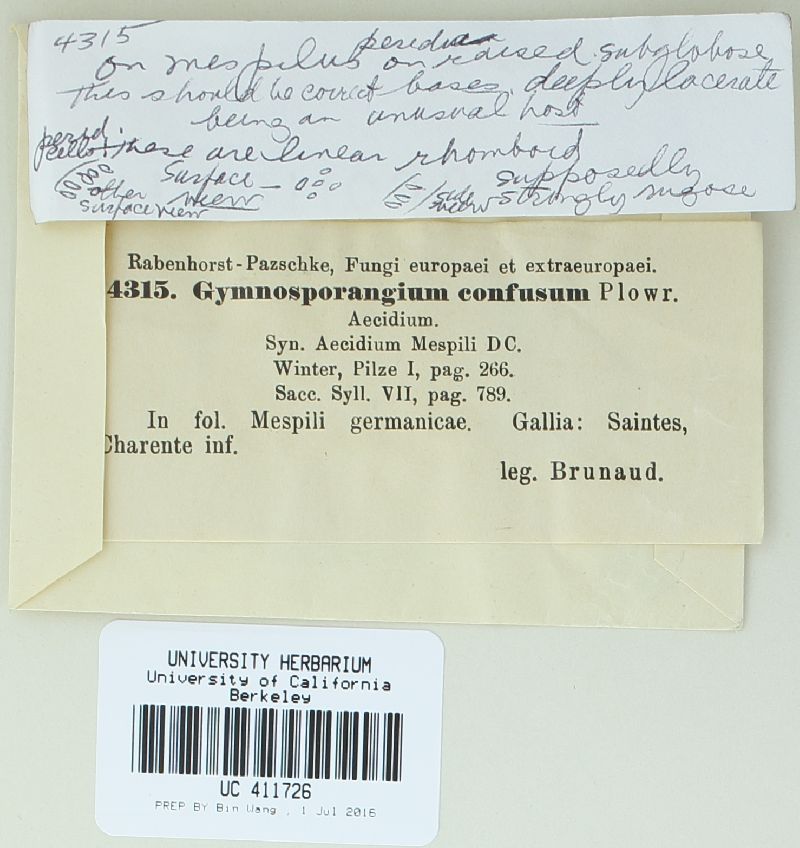 4315
On mespilus peridia on raised subglobose
This should be correct bases, deeply lacerate
being an unusual host
perid.
cells these are linear rhomboid
surface view
other
surface view
side view
supposedly
strongly rugose
Rabenhorst-Pazschke, Fungi europaei et extraeuropaei.
4315. Gymnosporangium confusum Plowr.
Aecidium.
Syn. Aecidium Mespili DC.
Winter, Pilze I, pag. 266.
Sacc. Syll. VII, pag. 789.
In fol. Mespili germanicae. Gallia: Saintes,
Charente inf.
leg. Brunaud.
UNIVERSITY HERBARIUM
University of California
Berkeley
UC 411726
PREP BY Bin Wang , 1 Jul 2016